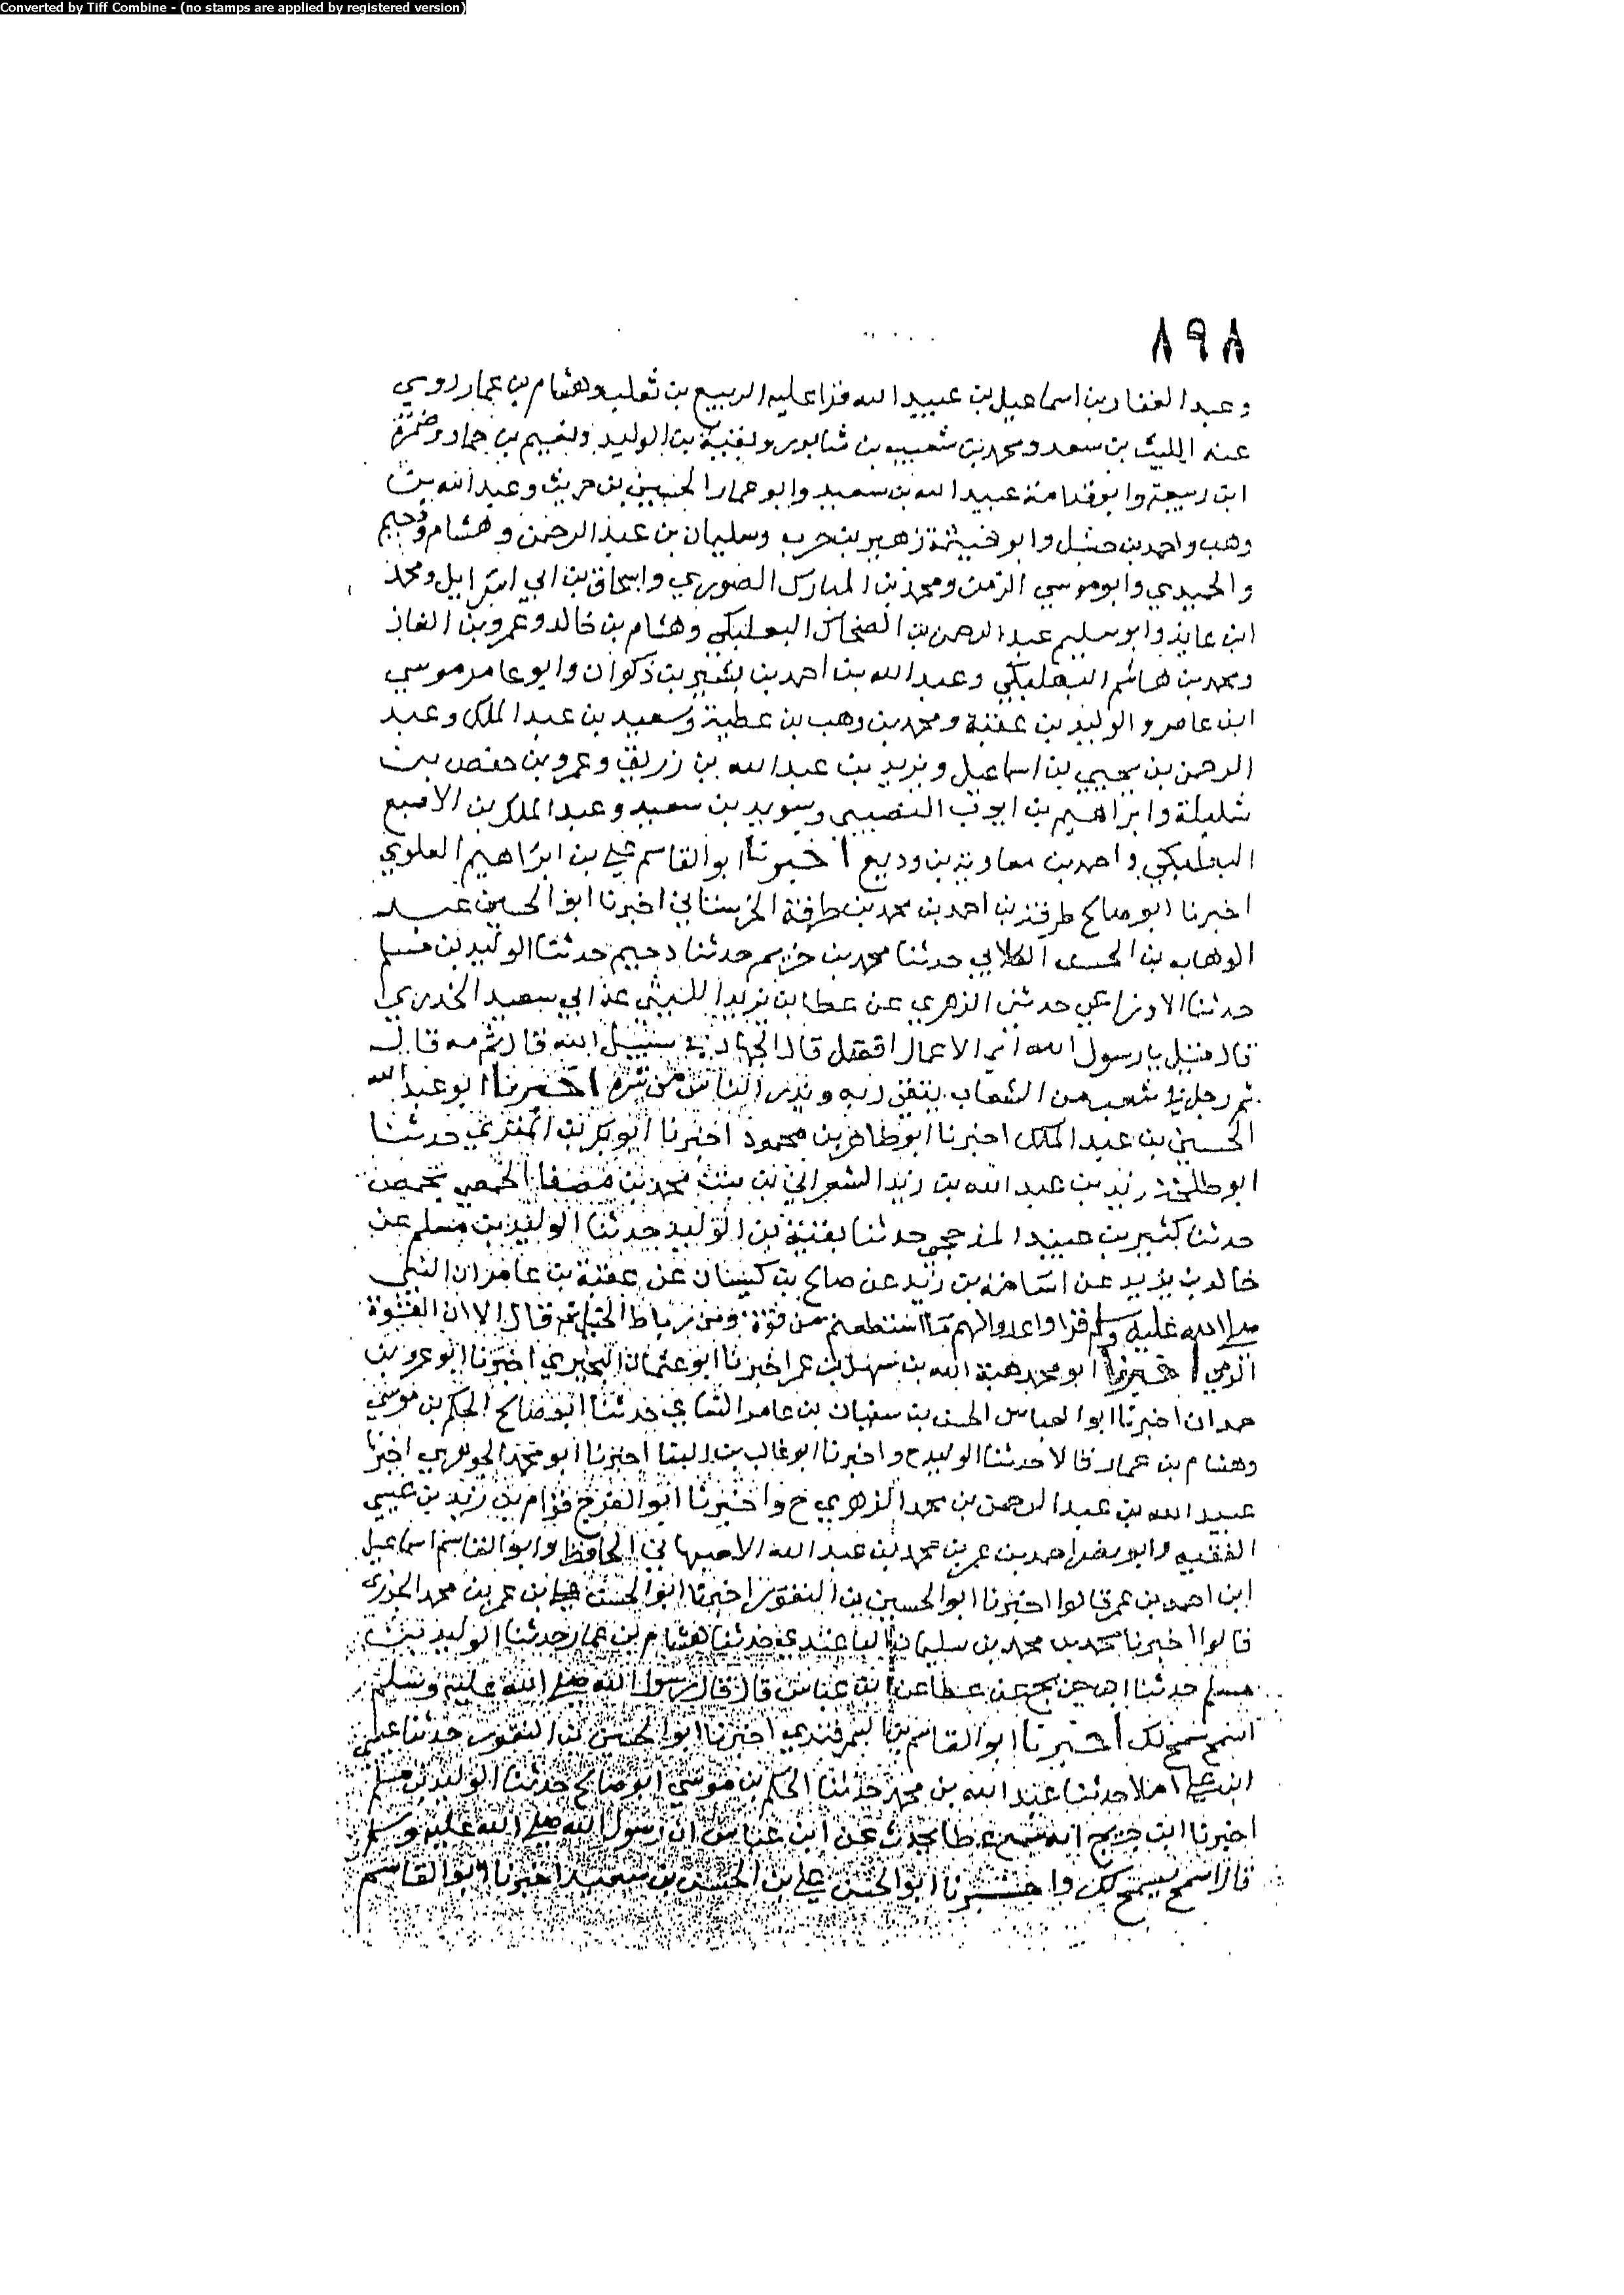 Converted by Tiff Combine - (no stamps are applied by registered version)
٨٩٨
وعبد الغفار بن اسماعيل بن عبيد الله قرا عليه الربيع بن ثعلب وهشام بن عمار روي
عنه الليث بن سعد ومحمد بن شعيب بن شابور وبقية بن الوليد ونعيم بن حماد وضمرة
ابن ربيعة وابو قدامة عبيد الله بن سعيد وابو عمار الحسين بن حريث وعبد الله بن
وهب واحمد بن حنبل وابو خيثمة زهير بن حرب وسليمان بن عبد الرحمن وهشام ودحيم
والحميدي وابو موسي الزمن ومحمد بن المبارك الصوري واسحاق بن ابي اسرايل ومحمد
ابن عايذ وابو سليم عبد الرحمن بن الضحاك البعلبكي وهشام بن خالد وعمرو بن الغاز
ومحمد بن هاشم البعلبكي وعبد الله بن احمد بن بشير بن ذكوان وابو عامر موسي
ابن عامر والوليد بن عتبة ومحمد بن وهب بن عطية وسعيد بن عبد الملك وعبد
الرحمن بن يحيي بن اسماعيل ويزيد بن عبد الله بن زريق وعمرو بن حفص بن
شليلة وابراهيم بن ايوب النصيبي وسويد بن سعيد وعبد الملك بن الاصبع
البعلبكي واحمد بن معاوية بن وديع اخبرنا ابو القاسم علي بن ابراهيم العلوي
اخبرنا ابو صالح طرفة بن احمد بن محمد بن طرفة الحرستاني اخبرنا ابو الحسين عبد
الوهاب بن الحسن الكلابي حدثنا محمد بن خريم حدثنا دحيم حدثنا الوليد بن مسلم
حدثنا الاوزاعي حدثني الزهري عن عطا بن يزيد الليثي عن ابي سعيد الخدري
قال قيل يا رسول الله اي الاعمال افضل قال الجهاد في سبيل الله قال ثم مه قال
ثم رجل في شعب من الشعاب يتقي ربه ويذر الناس من شره اخبرنا ابو عبد الله
الحسين بن عبد الملك اخبرنا ابو طاهر بن محمود اخبرنا ابو بكر بن المقري حدثنا
ابو طلحة زيد بن عبد الله بن زيد الشعراني بن بنت محمد بن مصفا الحمصي بحمص
حدثنا كثير بن عبيد المذحجي حدثنا بقية بن الوليد حدثنا الوليد بن مسلم عن
خالد بن يزيد عن اسامة بن زيد عن صالح بن كيسان عن عقبة بن عامر ان النبي
صلى الله عليه وسلم قرا واعدوا لهم ما استطعتم من قوة ومن رباط الخيل ثم قال الا ان القوة
الرمي اخبرنا ابو محمد هبة الله بن سهل بن عمر اخبرنا ابو عثمان البحيري اخبرنا ابو عمرو بن
حمدان اخبرنا ابو العباس الحسن بن سفيان بن عامر حدثنا ابو صالح الحكم بن موسي
وهشام بن عمار قالا حدثنا الوليد ح واخبرنا ابو غالب بن البنا اخبرنا ابو محمد الجوهري اخبرنا
عبيد الله بن عبد الرحمن بن محمد الزهري ح واخبرنا ابو الفرج قوام بن زيد بن عيسي
الفقيه وابو نصر احمد بن عمر بن محمد بن عبد الله الاصبهاني الحافظ وابو القاسم اسماعيل
ابن احمد بن عمر قالوا اخبرنا ابو الحسين بن النقور اخبرنا ابو الحسن علي بن عمر بن محمد الحربي
قالوا اخبرنا محمد بن محمد بن سليمان الباغندي حدثنا هشام بن عمار حدثنا الوليد بن
مسلم حدثنا ابن جريج عن عطا عن ابن عباس قال قال رسول الله صلى الله عليه وسلم
اسمح يسمح لك اخبرنا ابو القاسم بن السمرقندي اخبرنا ابو الحسين بن النقور حدثنا عيسي
ابن علي املا حدثنا عبد الله بن محمد حدثنا الحكم بن موسي ابو صالح حدثنا الوليد بن مسلم
اخبرنا ابن جريج انه سمع عطا يحدث عن ابن عباس ان رسول الله صلى الله عليه وسلم
قال اسمح يسمح لك واخبرنا ابو الحسن علي بن الحسن بن سعيد اخبرنا ابو القاسم